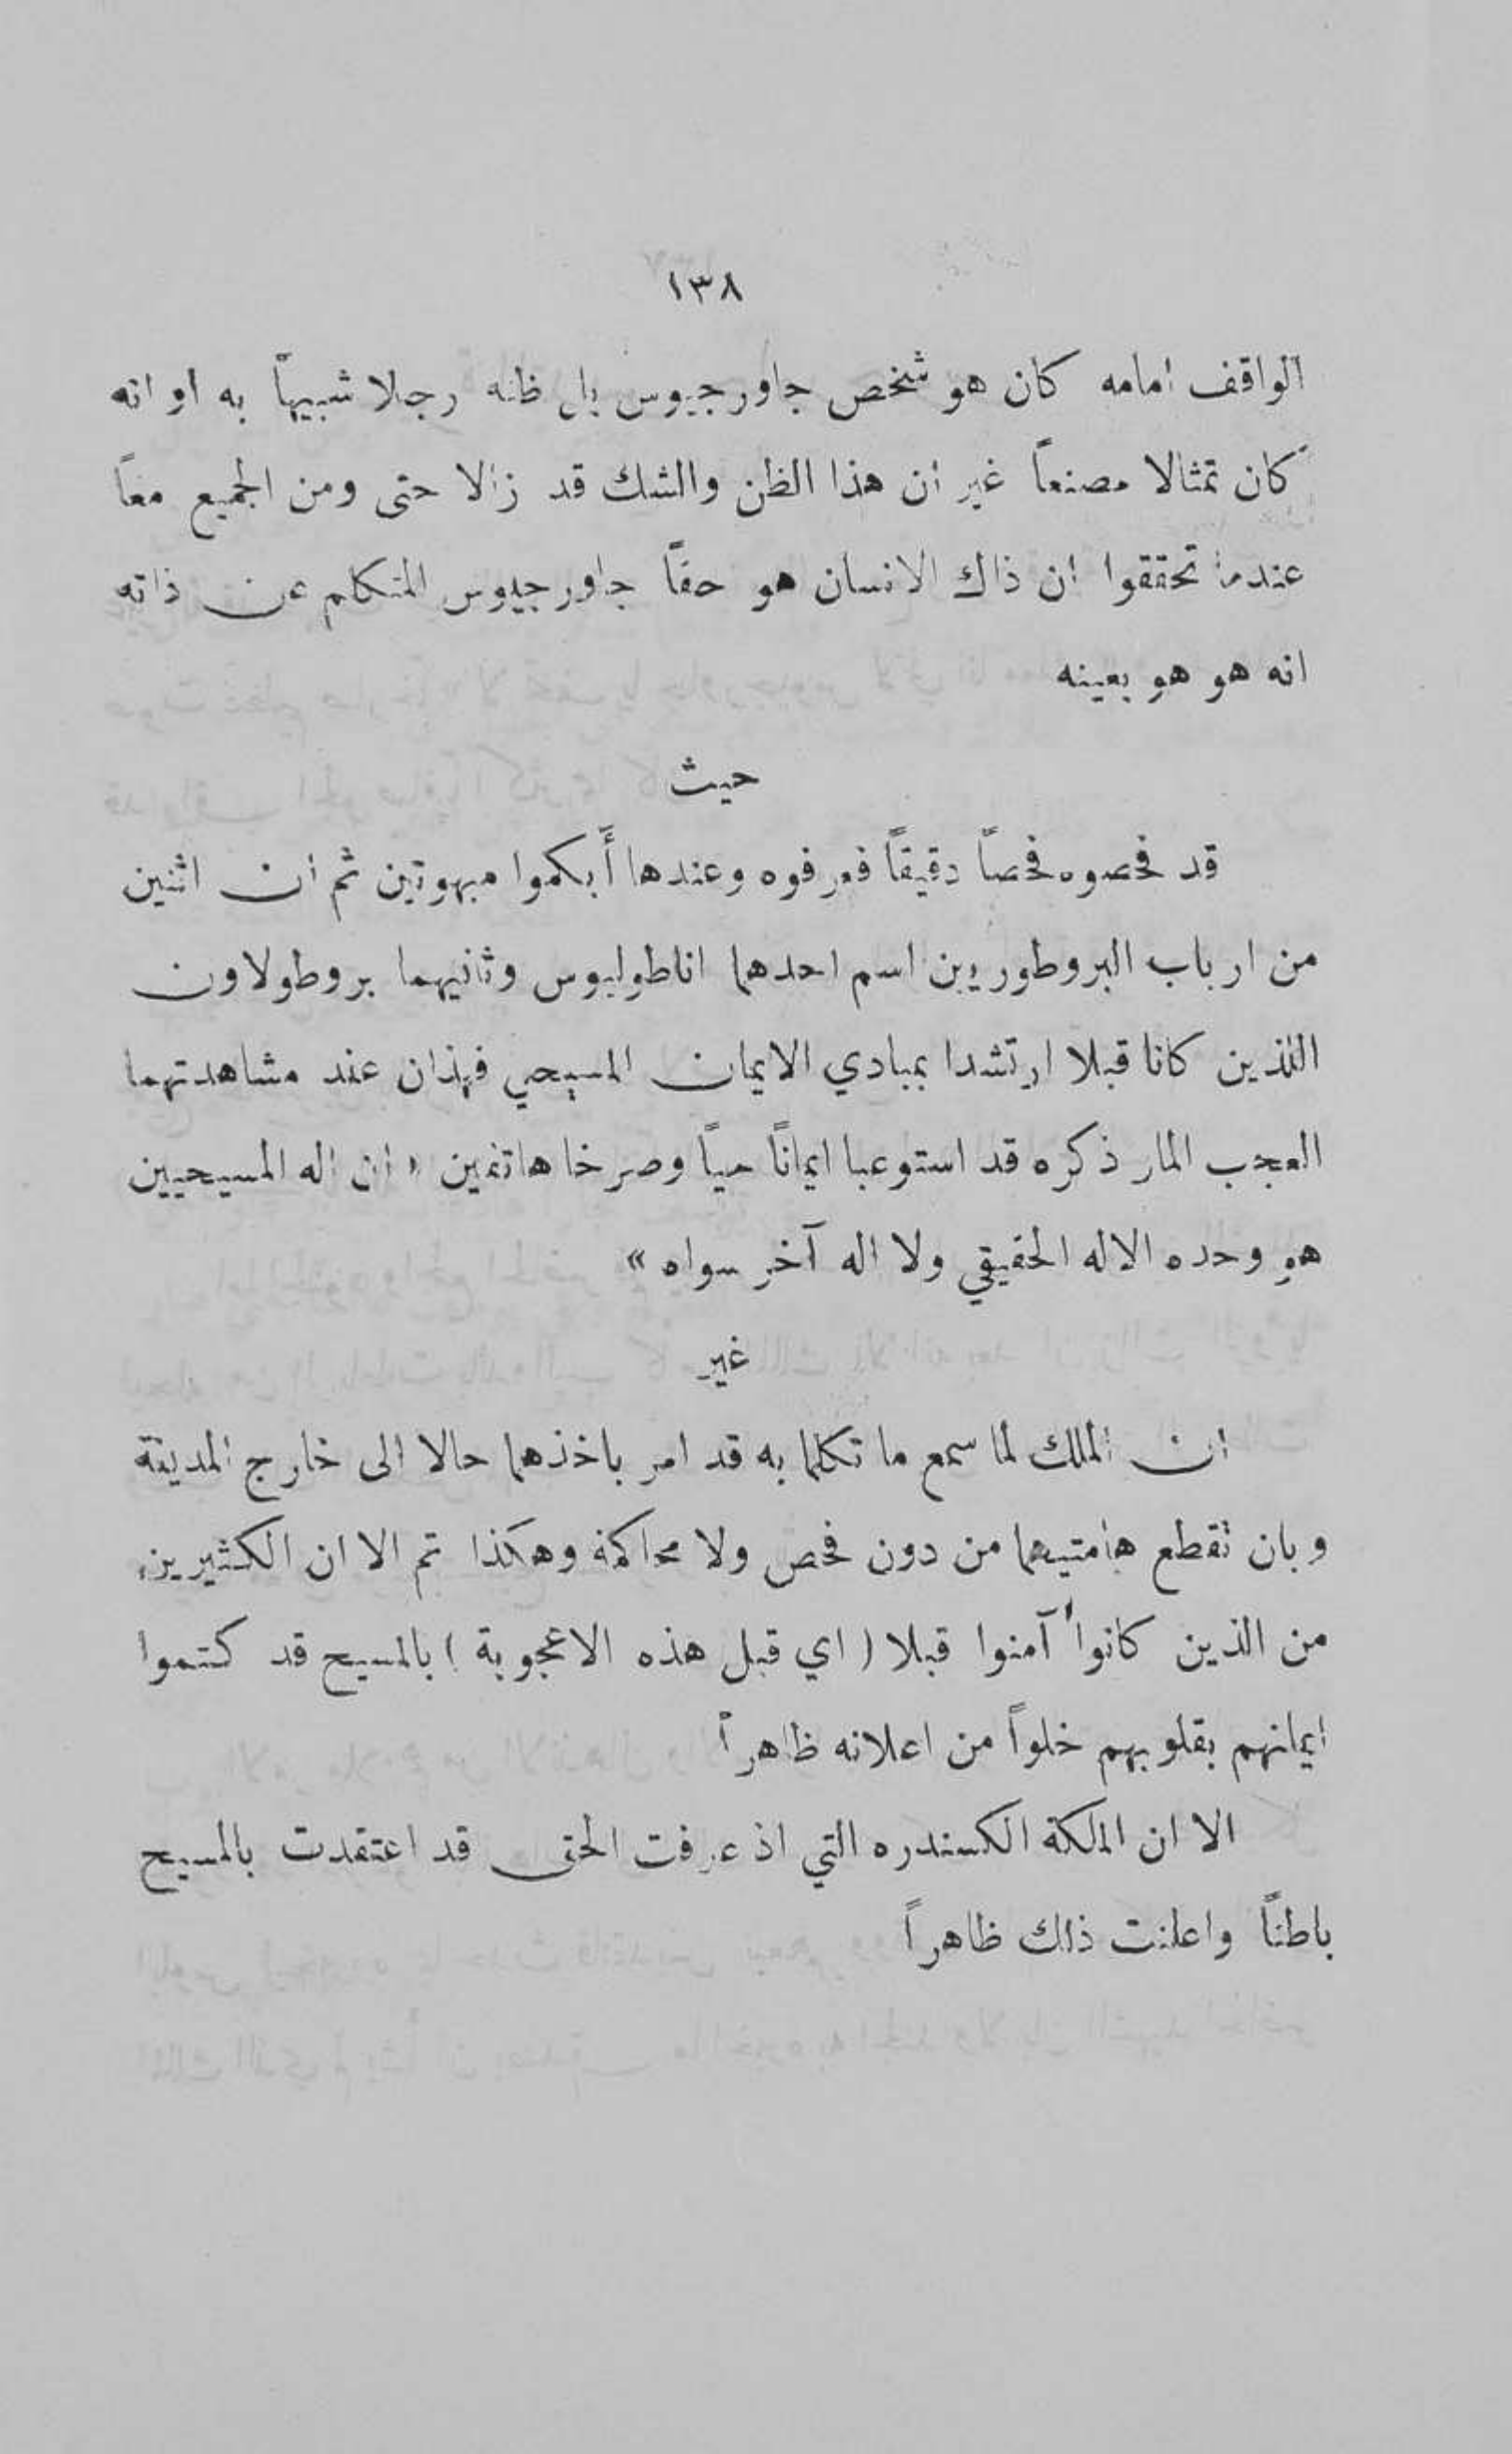 ١٣٨
الواقف امامه كان هو شخص جاورجيوس بل ظنه رجلا شبيهاً به او انه
كان تمثالا مصنعاً غير ان هذا الظن والشك قد زالا حتى ومن الجميع معاً
عندما تحققوا ان ذاك الانسان هو حقاً جاورجيوس المتكلم عن ذاته
انه هو هو بعينه
حيث
قد فحصوه فحصاً دقيقاً فعرفوه وعندها أَبكموا مبهوتين ثم ان اثنين
من ارباب البروطوريين اسم احدهما اناطوليوس وثانيهما بروطولاون
اللذين كانا قبلا ارتشدا بمبادي الايمان المسيحي فهذان عند مشاهدتهما
العجب المار ذكره قد استوعبا ايماناً حياً وصرخا هاتفين « ان اله المسيحيين
هو وحده الاله الحقيقي ولا اله آخر سواه »
غير
ان الملك لما سمع ما تكلما به قد امر باخذهما حالا الى خارج المدينة
وبان تقطع هامتيهما من دون فحص ولا محاكمة وهكذا تم الا ان الكثيرين
من الذين كانوا آمنوا قبلا ( اي قبل هذه الاعجوبة ) بالمسيح قد كتموا
ايمانهم بقلوبهم خلواً من اعلانه ظاهراً
الا ان الملكة الكسندره التي اذ عرفت الحق قد اعتقدت بالمسيح
باطناً واعلنت ذلك ظاهراً